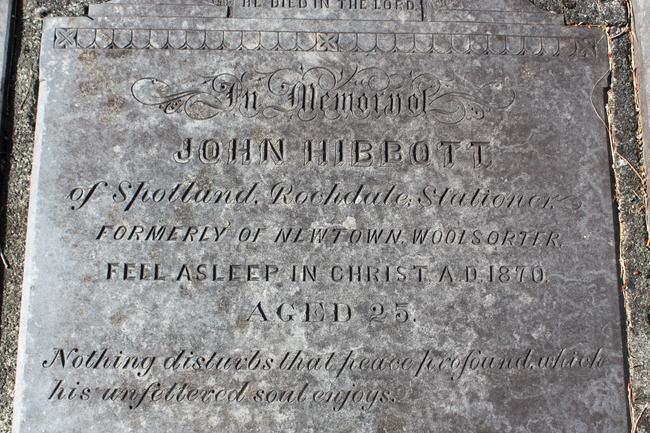 HE DIED IN THE LORD.
In Memory of
JOHN HIBBOTT
of Spotland, Rochdale, Stationer,
FORMERLY OF NEWTOWN, WOOLSORTER,
FELL ASLEEP IN CHRIST A.D. 1870.
AGED 25.
Nothing disturbs that peace profound, which
his unfettered soul enjoys.